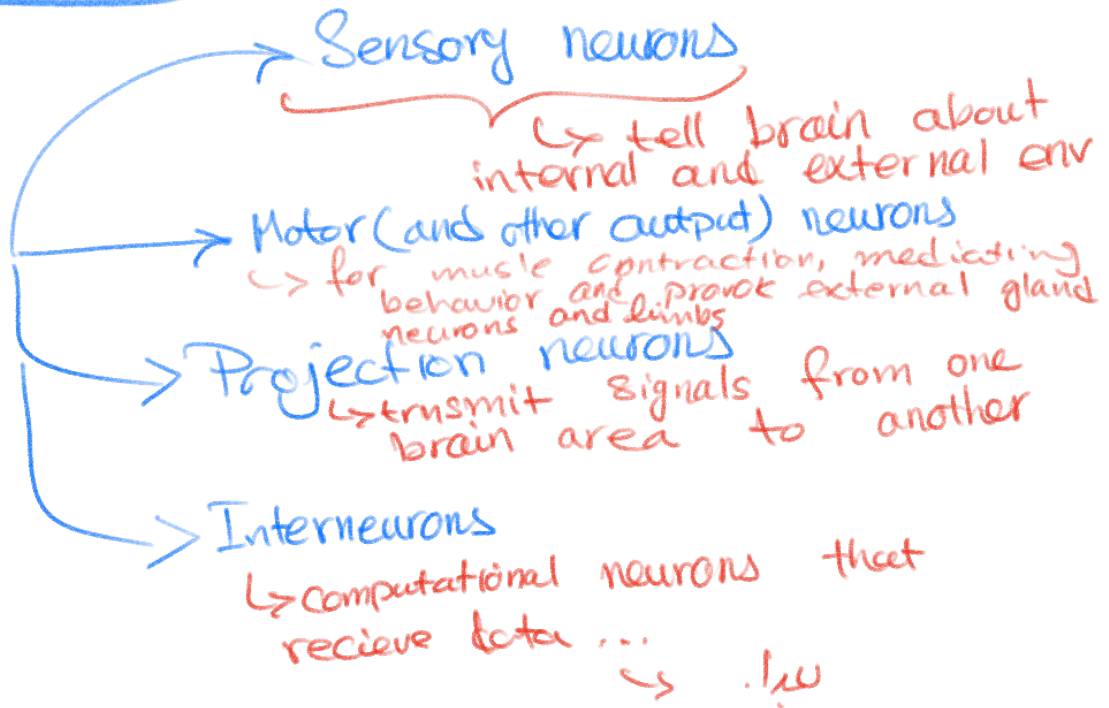 Sensory neurons
↳ tell brain about
internal and external env
Motor (and other output) neurons
↳ for musle contraction, mediating
behavior and provok external gland
neurons and limbs
Projection neurons
↳ trnsmit signals from one
brain area to another
Interneurons
↳ computational neurons that
recieve data ...